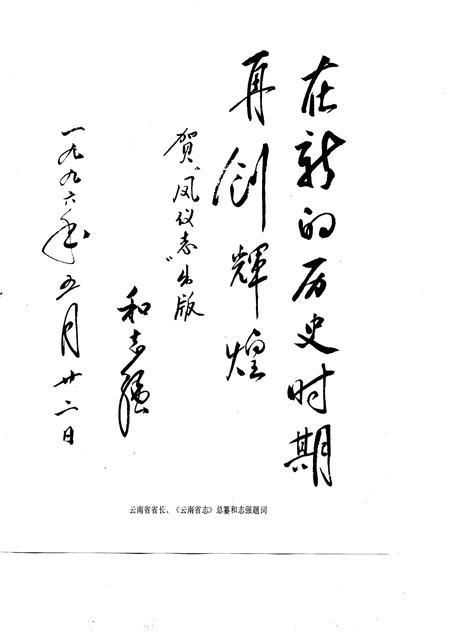 在新的历史时期
再创辉煌
贺“凤仪志”出版
和志强
一九九六年五月廿二日
云南省省长、《云南省志》总纂和志强题词